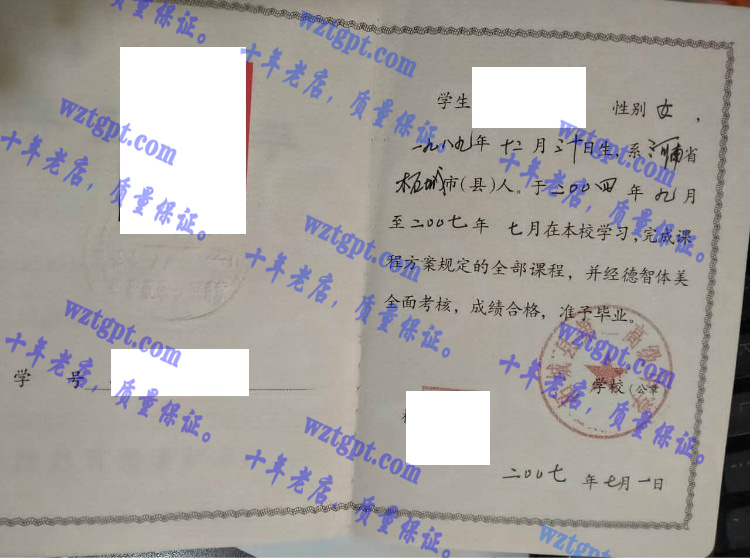 学生 性别 女，
一九八九年 十二月三十日生，系河南省
柘城市（县）人。于二〇〇四年 九月
至二〇〇七年 七月在本校学习，完成课
程方案规定的全部课程，并经德智体美
全面考核，成绩合格，准予毕业。
学校（公章
学 号
二〇〇七 年 七月 一日
质量保证。
wztgpt.com
十年老店，质量保证。
wztgpt.com
十年老店，质量保证。
wztgpt.com
十年老店，质量保证。
wztgpt.com
十年老店，质量保证。
wztgpt.com
十年老店，质量保证。
wztgpt.com
十年老店，质量保证。
wztgpt.com
十年老店，质量保证。
wztgpt.com
十年老店，质量保证。
wztgpt.com